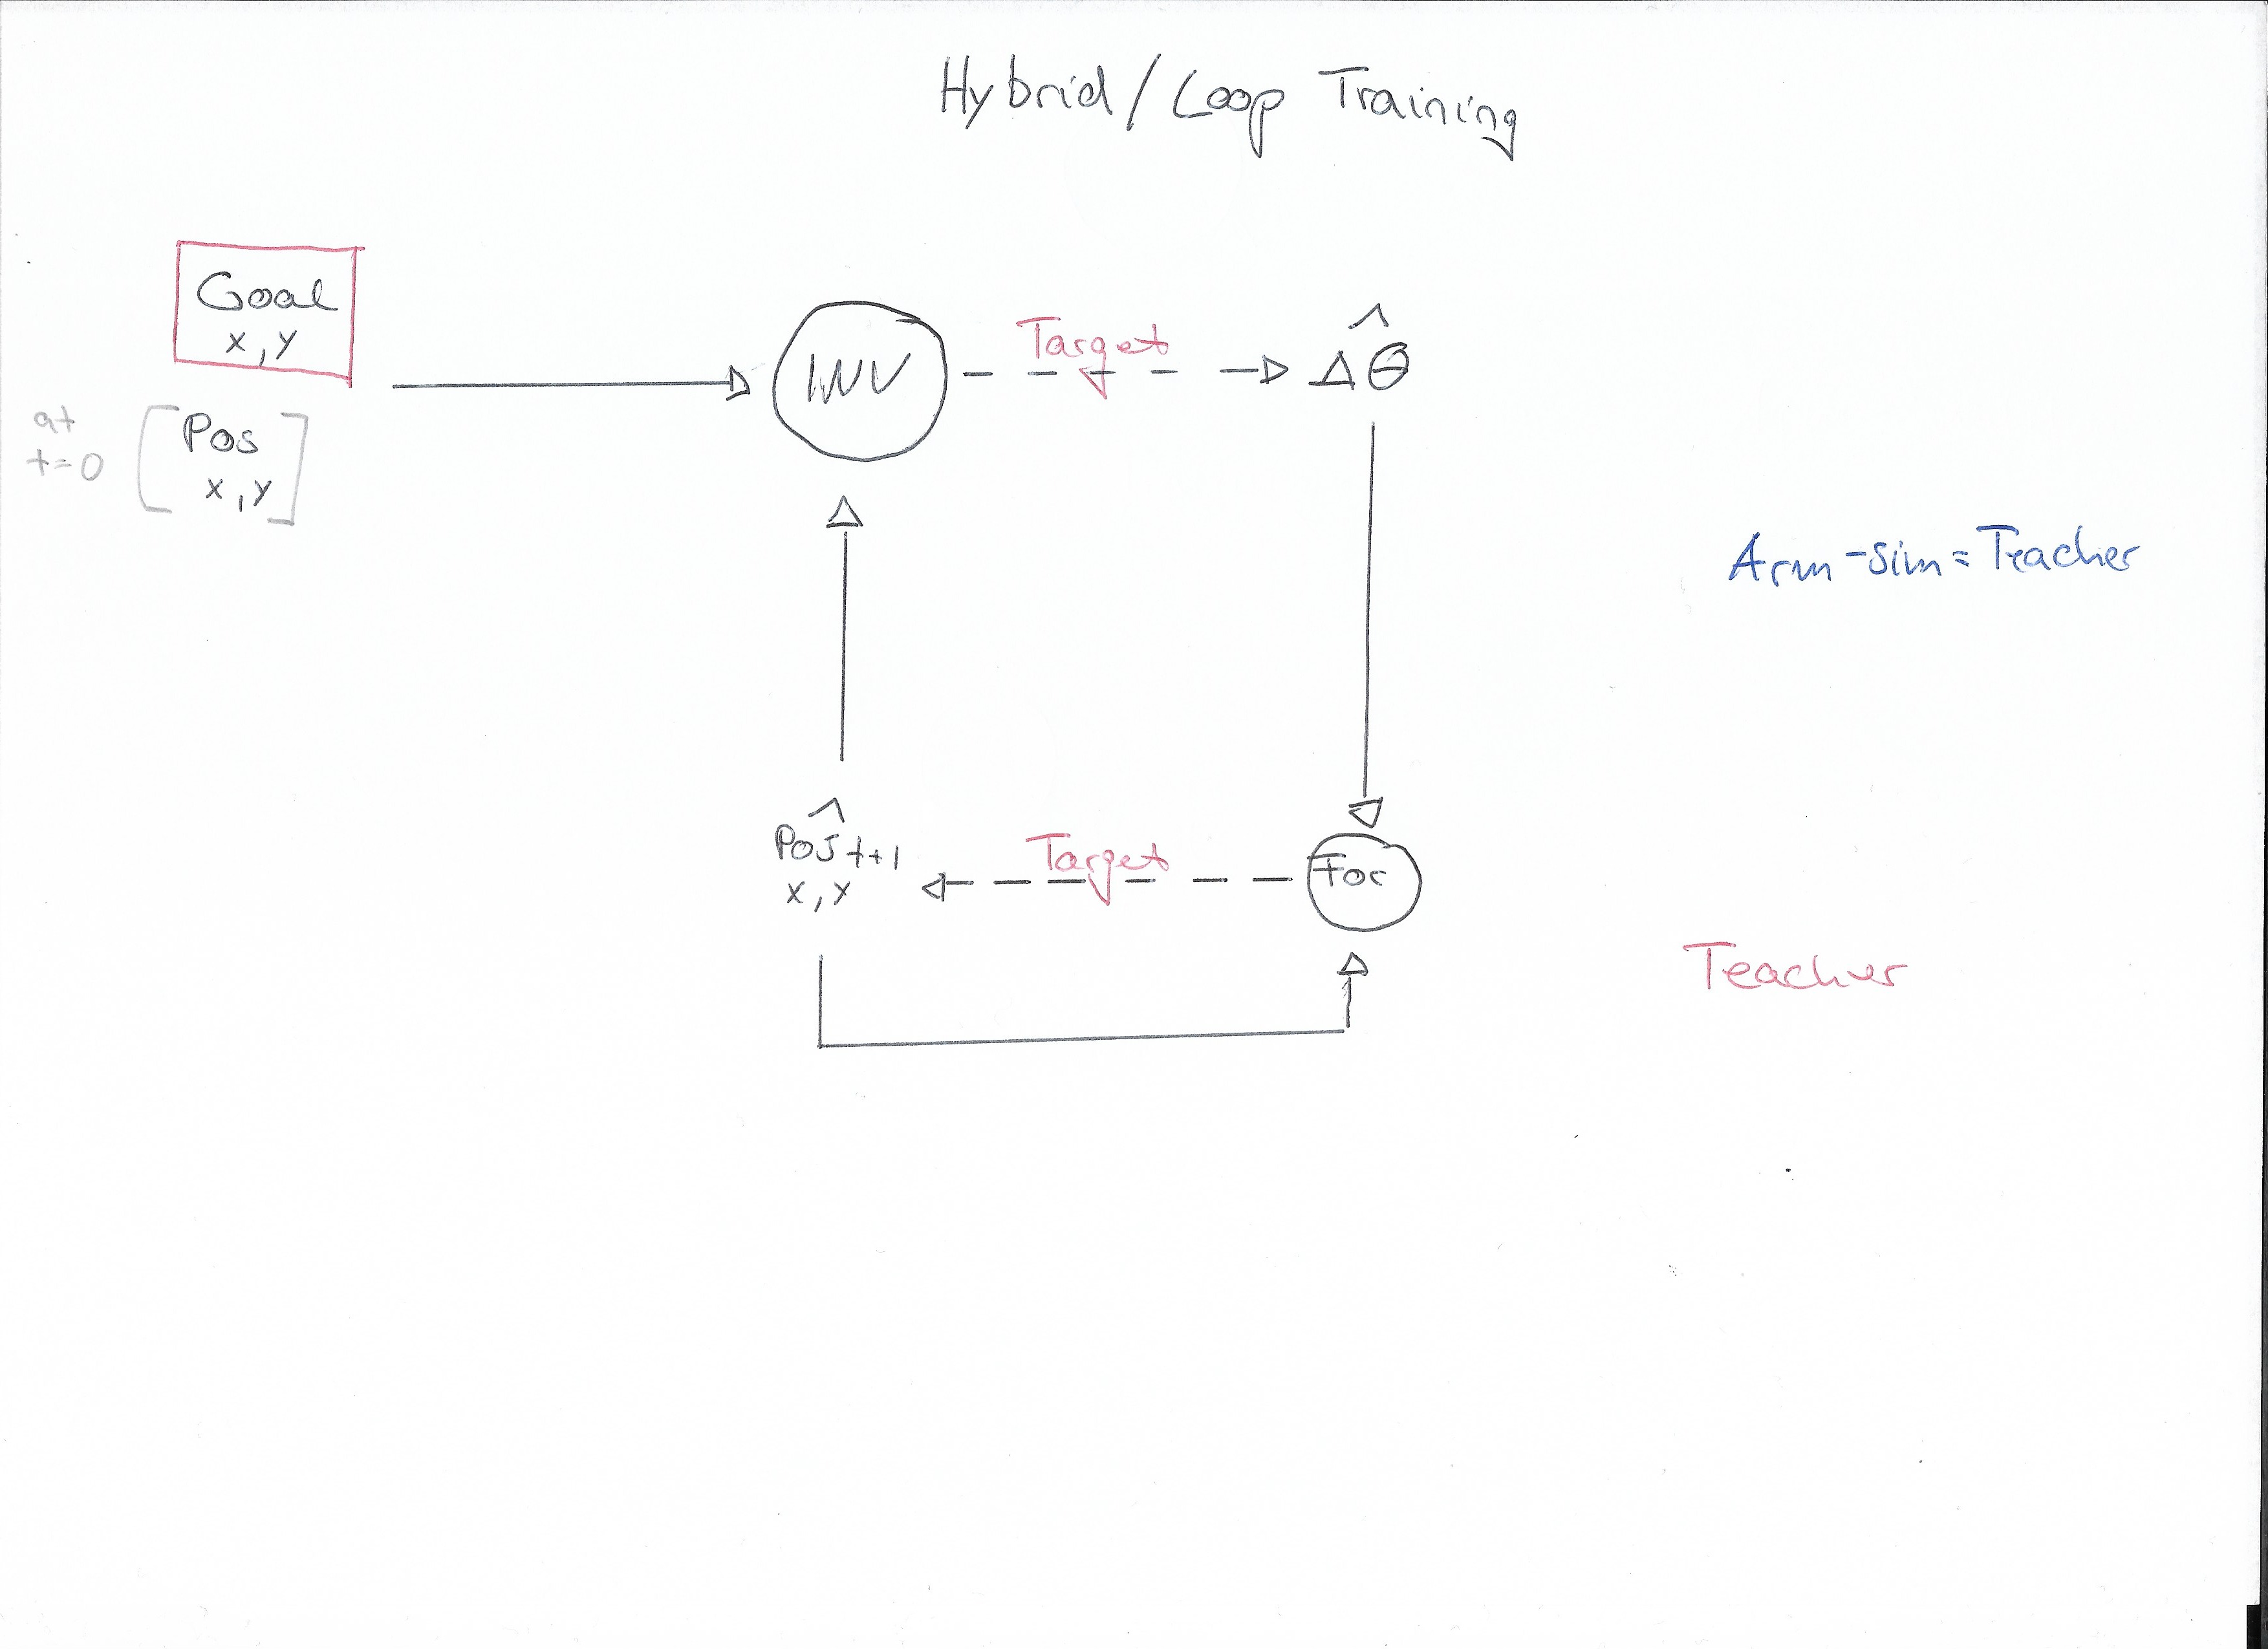 Hybrid / Loop Training
Goal
x, y
at
t=0
Pos
x, y
INV
Target
Δθ̂
Arm-Sim = Teacher
Pôs t+1
x, y
Target
For
Teacher